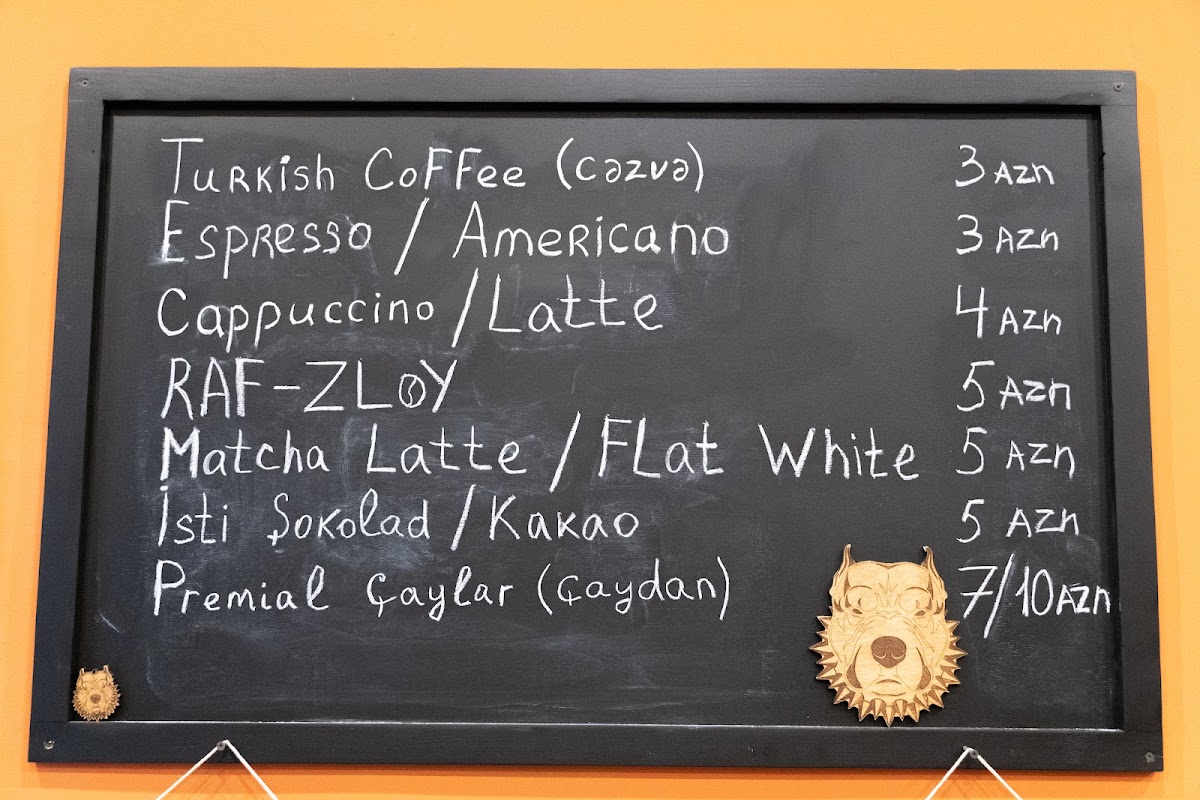 Turkish Coffee (cəzvə) 3 Azn
Espresso / Americano 3 Azn
Cappuccino / Latte 4 Azn
RAF-ZLOY 5 Azn
Matcha Latte / Flat White 5 Azn
İsti Şokolad / Kakao 5 Azn
Premial Çaylar (çaydan) 7/10 Azn